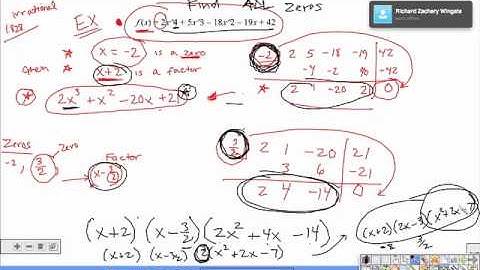 irrational
1.828
Find ALL Zeros
EX
f(x) = 2x^4 + 5x^3 - 18x^2 - 19x + 42
Richard Zachary Wingate
* x = -2 is a zero
then x+2 is a factor
* 2x³ + x² - 20x + 21 *
-2 | 2 5 -18 -19 42
-4 -2 40 -42
* 2 1 -20 21 0
Zeros
-2, 3/2
Zero
Factor
x - 3/2
3/2 | 2 1 -20 21
3 6 -21
2 4 -14 0
(x+2)(x-3/2)(2x²+4x-14)
(x+2)(x-3/2) 2(x²+2x-7)
(x+2)(2x-3)(x²+2x-7)
-2 3/2